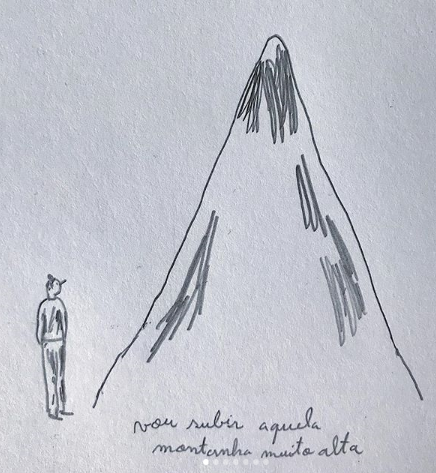 vou subir aquela
montanha muito alta